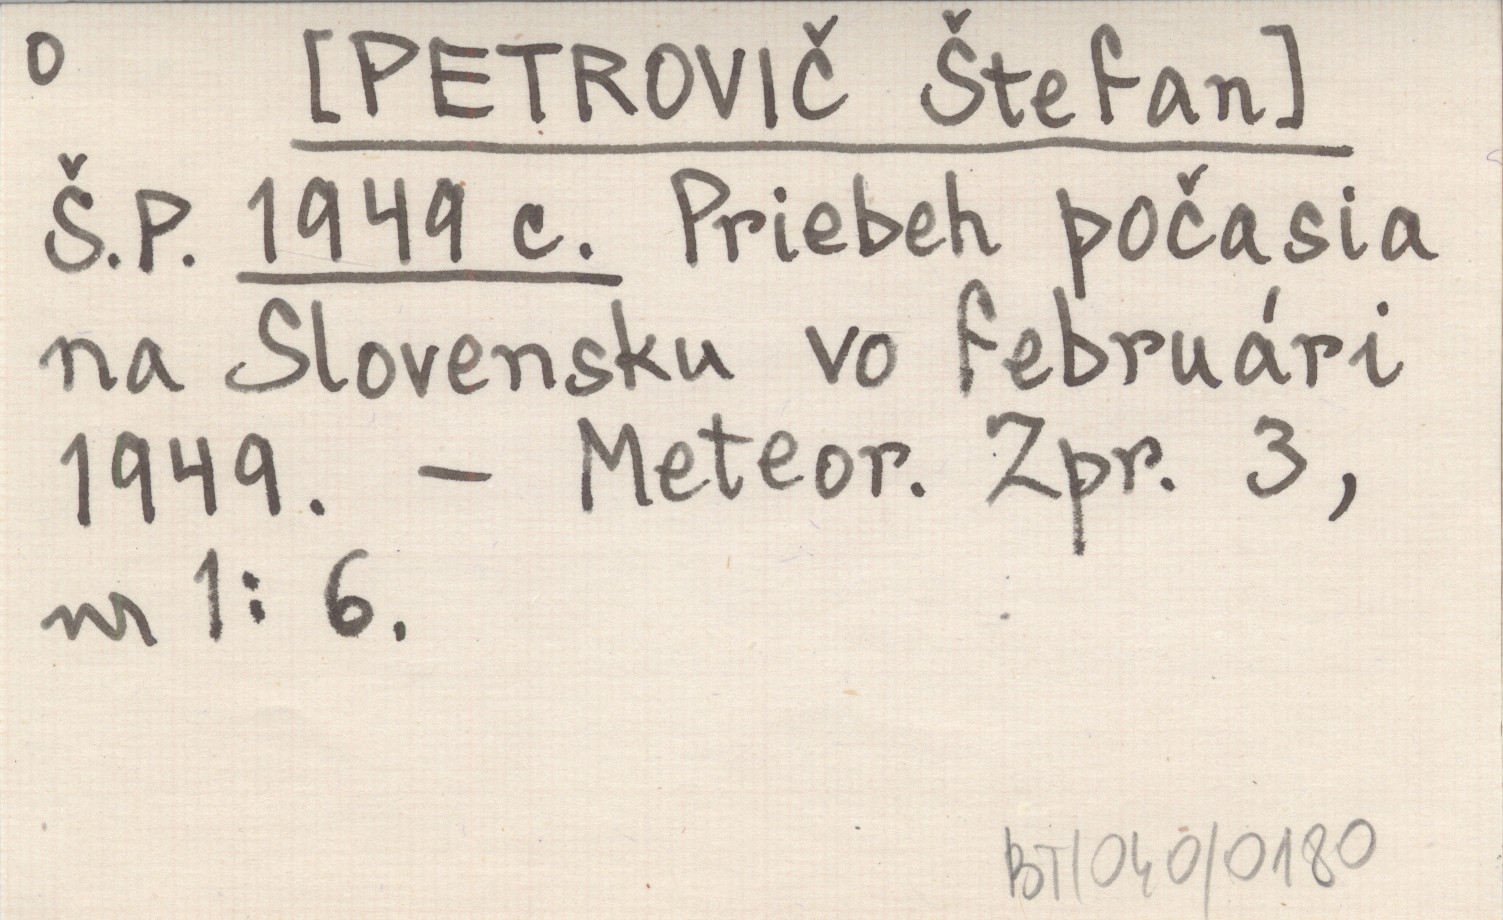 0 [PETROVIČ Štefan]
Š.P. 1949 c. Priebeh počasia
na Slovensku vo februári
1949. – Meteor. Zpr. 3,
nr 1: 6.
BT/040/0180